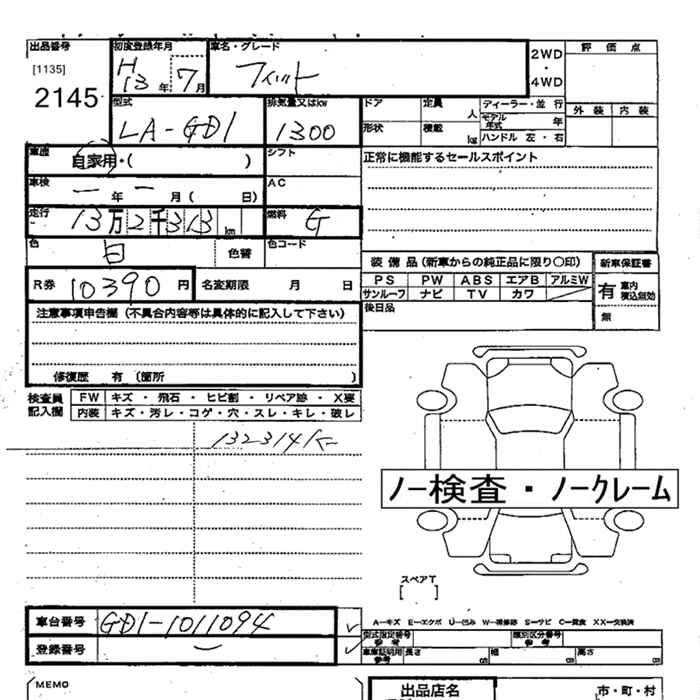 出品番号 初度登録年月 車名・グレード 評価点
[1135] H13年7月 フィット 2WD・4WD
2145 外装 内装
型式 LA-GD1 排気量又はkw 1300 ドア 定員 人 ディーラー・並行
モデル年式 年
形状 積載 kg ハンドル 左・右
車歴 自家用・( ) シフト 正常に機能するセールスポイント
車検 ー年ー月( 日) AC
走行 13万2千313km 燃料 G
色 白 色替 色コード
装備品(新車からの純正品に限り○印) 新車保証書
R券 10390円 名変期限 月 日 PS PW ABS エアB アルミW 有 車内積込無効
サンルーフ ナビ TV カワ 無
注意事項申告欄(不具合内容等は具体的に記入して下さい) 後日品
修復歴 有(箇所 )
検査員記入欄 FW キズ・飛石・ヒビ割・リペア跡・X要
内装 キズ・汚レ・コゲ・穴・スレ・キレ・破レ
132314K
ノー検査・ノークレーム
スペアT
[ ]
車台番号 GD1-1011094 A-キズ E-エクボ U-凹み W-補修跡 S-サビ C-腐食 XX-交換済
型式指定番号 参考 類別区分番号 参考
登録番号 ー 車庫証明用 参考 長さ cm 幅 cm 高さ cm
MEMO 出品店名 市・町・村